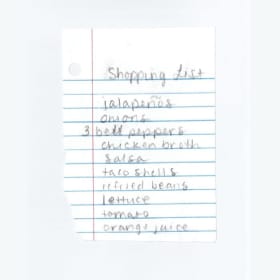 Shopping List
jalapeños
onions
3 bell peppers
chicken broth
salsa
taco shells
refried beans
lettuce
tomato
orange juice